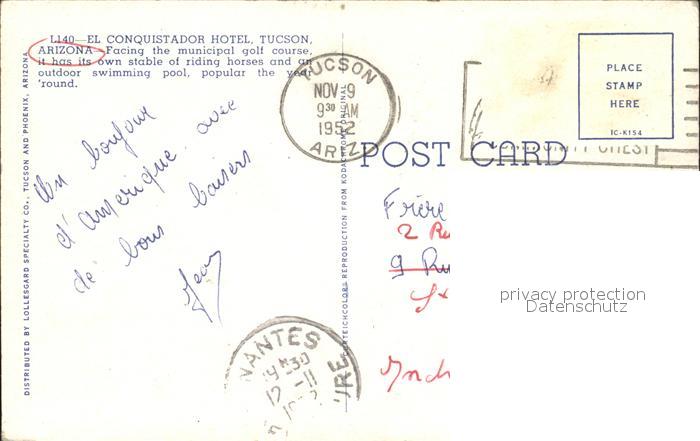 L140—EL CONQUISTADOR HOTEL, TUCSON,
ARIZONA—Facing the municipal golf course,
it has its own stable of riding horses and an
outdoor swimming pool, popular the year
'round.
Un bonjour
d'amerique avec
de bons baisers
Jean
DISTRIBUTED BY LOLLESGARD SPECIALTY CO., TUCSON AND PHOENIX, ARIZONA
REPRODUCTION FROM KODACHROME ORIGINAL
TUCSON
NOV-9
9 30 AM
1952
ARIZ.
POST CARD
PLACE
STAMP
HERE
IC-K154
CHEST
Frère
2 Ru
9 Ru
privacy protection
Datenschutz
NANTES